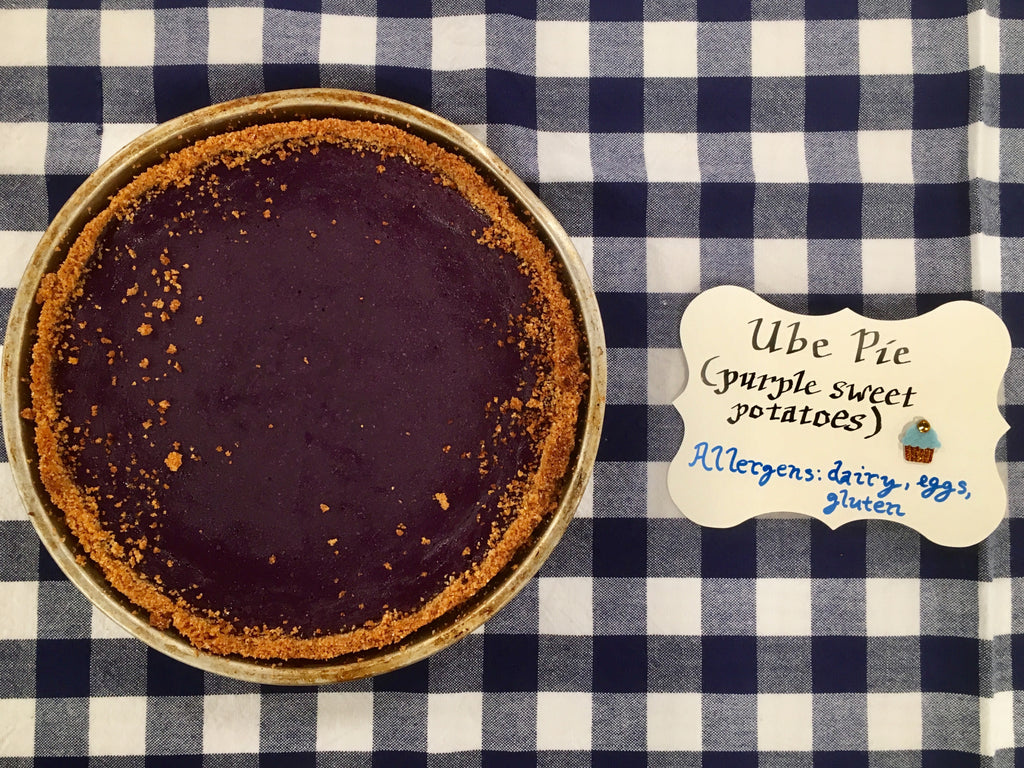 Ube Pie
(purple sweet
potatoes)
Allergens: dairy, eggs,
gluten